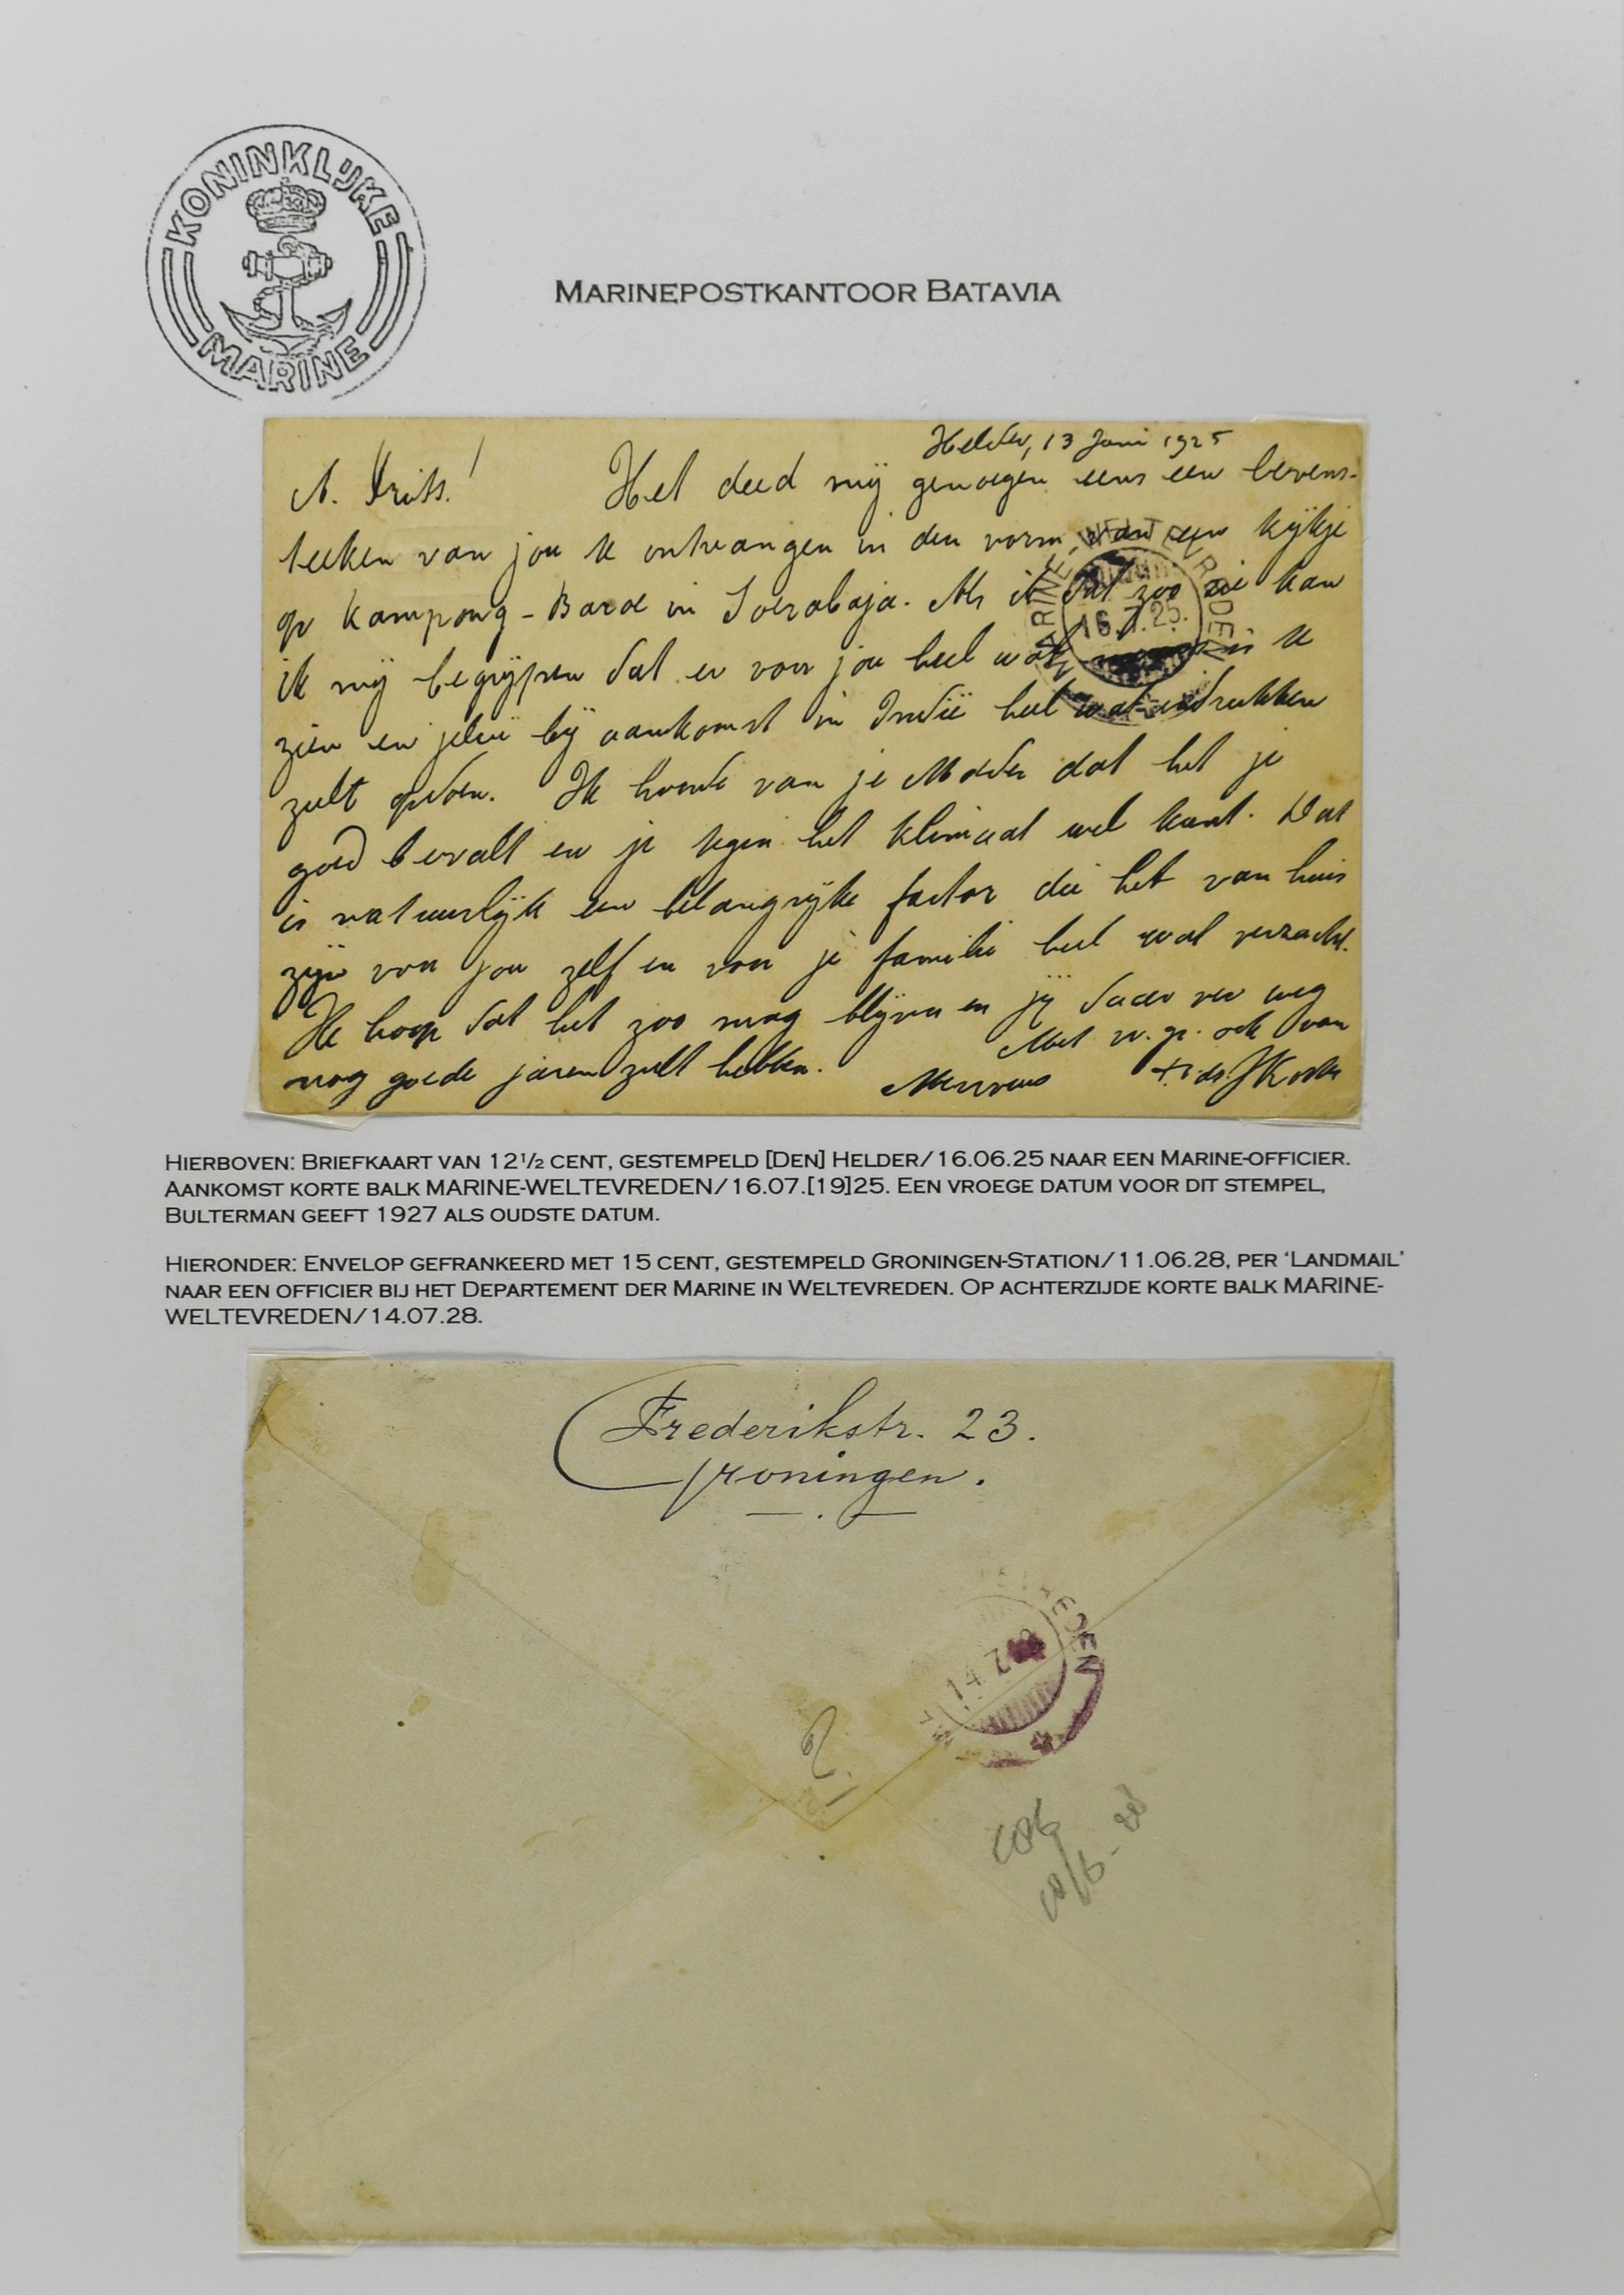 KONINKLIJKE
MARINE
MARINEPOSTKANTOOR BATAVIA
Helder, 13 Juni 1925
A. Frits! Het deed mij genoegen eens een levens-
teeken van jou te ontvangen in den vorm van een kijkje
op Kampong-Baroe in Soerabaja. Als ik dat zoo zie kan
ik mij begrijpen dat er voor jou heel wat is te
zien en jelui bij aankomst in Indië heel wat indrukken
zult opdoen. Ik hoorde van je Moeder dat het je
goed bevalt en je tegen het klimaat wel kunt. Dat
is natuurlijk een belangrijke factor die het van huis
zijn voor jou zelf en voor je familie heel wat verzacht.
Ik hoop dat het zoo mag blijven en jij daar ver weg
nog goede jaren zult hebben. Met v. gr. ook van
Mevrouw
MARINE WELTEVREDEN
16.7.25.
HIERBOVEN: BRIEFKAART VAN 12½ CENT, GESTEMPELD [DEN] HELDER/16.06.25 NAAR EEN MARINE-OFFICIER.
AANKOMST KORTE BALK MARINE-WELTEVREDEN/16.07.[19]25. EEN VROEGE DATUM VOOR DIT STEMPEL,
BULTERMAN GEEFT 1927 ALS OUDSTE DATUM.
HIERONDER: ENVELOP GEFRANKEERD MET 15 CENT, GESTEMPELD GRONINGEN-STATION/11.06.28, PER 'LANDMAIL'
NAAR EEN OFFICIER BIJ HET DEPARTEMENT DER MARINE IN WELTEVREDEN. OP ACHTERZIJDE KORTE BALK MARINE-
WELTEVREDEN/14.07.28.
Frederikstr. 23.
Groningen.
14.7.28